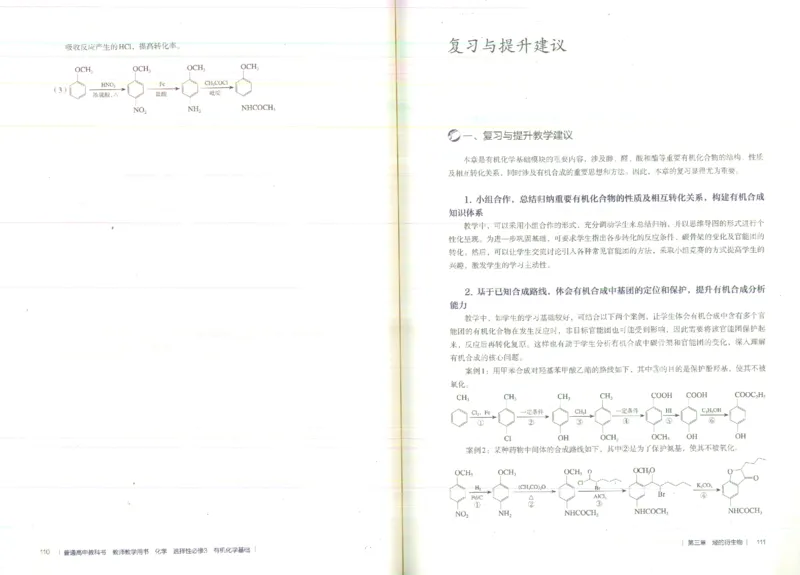 吸收反应产生的HCl，提高转化率。
OCH₃ OCH₃ OCH₃ OCH₃
(3) HNO₃ Fe CH₃COCl
浓硫酸，△ 盐酸 吡啶
NO₂ NH₂ NHCOCH₃
110 普通高中教科书 教师教学用书 化学 选择性必修3 有机化学基础
复习与提升建议
一、复习与提升教学建议
本章是有机化学基础模块的重要内容，涉及醇、醛、酸和酯等重要有机化合物的结构、性质
及相互转化关系，同时涉及有机合成的重要思想和方法。因此，本章的复习显得尤为重要。
1. 小组合作，总结归纳重要有机化合物的性质及相互转化关系，构建有机合成
知识体系
教学中，可以采用小组合作的形式，充分调动学生来总结归纳，并以思维导图的形式进行个
性化呈现。为进一步巩固基础，可要求学生指出各步转化的反应条件、碳骨架的变化及官能团的
转化。然后，可以让学生交流讨论引入各种常见官能团的方法，采取小组竞赛的方式提高学生的
兴趣，激发学生的学习主动性。
2. 基于已知合成路线，体会有机合成中基团的定位和保护，提升有机合成分析
能力
教学中，如学生的学习基础较好，可结合以下两个案例，让学生体会有机合成中含有多个官
能团的有机化合物在发生反应时，非目标官能团也可能受到影响，因此需要将该官能团保护起
来，反应后再转化复原。这样也有助于学生分析有机合成中碳骨架和官能团的变化，深入理解
有机合成的核心问题。
案例1：用甲苯合成对羟基苯甲酸乙酯的路线如下，其中③的目的是保护酚羟基，使其不被
氧化。
CH₃ CH₃ CH₃ CH₃ COOH COOH COOC₂H₅
Cl₂，Fe 一定条件 CH₃I 一定条件 HI C₂H₅OH
① ② ③ ④ ⑤ ⑥
Cl OH OCH₃ OCH₃ OH OH
案例2：某种药物中间体的合成路线如下，其中②是为了保护氨基，使其不被氧化。
OCH₃ OCH₃ OCH₃ O OCH₃O O O
H₂ (CH₃CO)₂O Cl Br Br K₂CO₃
Pd/C △ AlCl₃
① ② ③ ④
NO₂ NH₂ NHCOCH₃ NHCOCH₃ NHCOCH₃
第三章 烃的衍生物 111